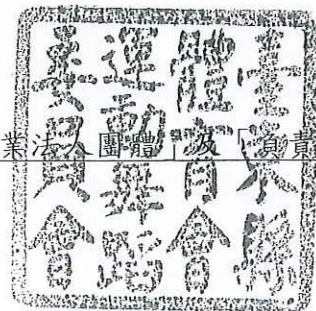 臺東縣
體育會
運動舞蹈
委員會
業法人團體」及「負責